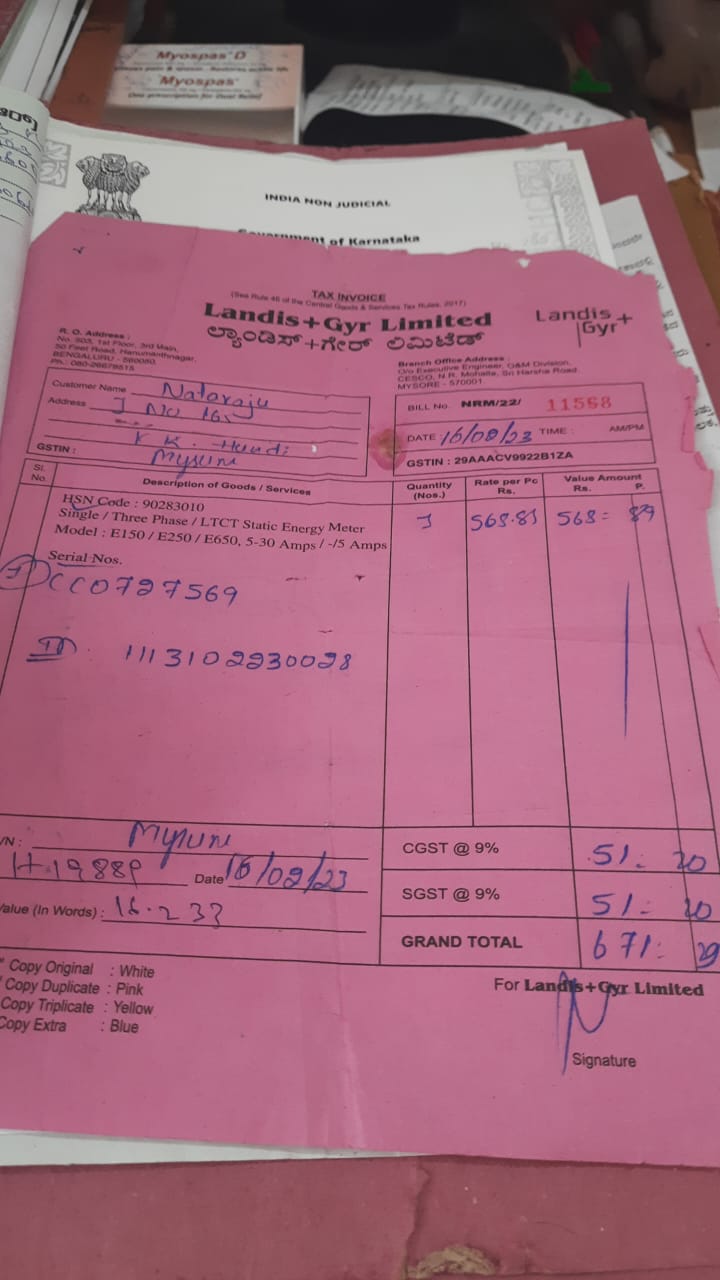 Myospas® D
Myospas®
One prescription for Dual Relief
INDIA NON JUDICIAL
Government of Karnataka
TAX INVOICE
(See Rule 46 of the Central Goods & Services Tax Rules, 2017)
Landis+Gyr Limited
ಲ್ಯಾಂಡಿಸ್+ಗೇರ್ ಲಿಮಿಟೆಡ್
Landis+
Gyr
R. O. Address :
No. 503, 1st Floor, 3rd Main,
50 Feet Road, Hanumanthnagar,
BENGALURU - 560050.
Ph.: 080-26679515
Branch Office Address :
O/o Executive Engineer, O&M Division,
CESCO, N.R. Mohalla, Sri Harsha Road,
MYSORE - 570001.
Customer Name Nataraju
Address No 165
K K. Hundi
GSTIN : Mysuru
BILL No. NRM/22/ 11568
DATE 16/02/23 TIME : AM/PM
GSTIN : 29AAACV9922B1ZA
Sl. No. Description of Goods / Services Quantity (Nos.) Rate per Pc Rs. Value Amount Rs. P.
HSN Code : 90283010
Single / Three Phase / LTCT Static Energy Meter 1 568.89 568= 89
Model : E150 / E250 / E650, 5-30 Amps / -/5 Amps
Serial Nos.
CC0727569
1113102230028
/N : Mysuru
H.19889 Date 16/02/23
Value (In Words) : 16.2.23
CGST @ 9% 51= 20
SGST @ 9% 51= 20
GRAND TOTAL 671= 29
Copy Original : White
Copy Duplicate : Pink
Copy Triplicate : Yellow
Copy Extra : Blue
For Landis+Gyr Limited
Signature